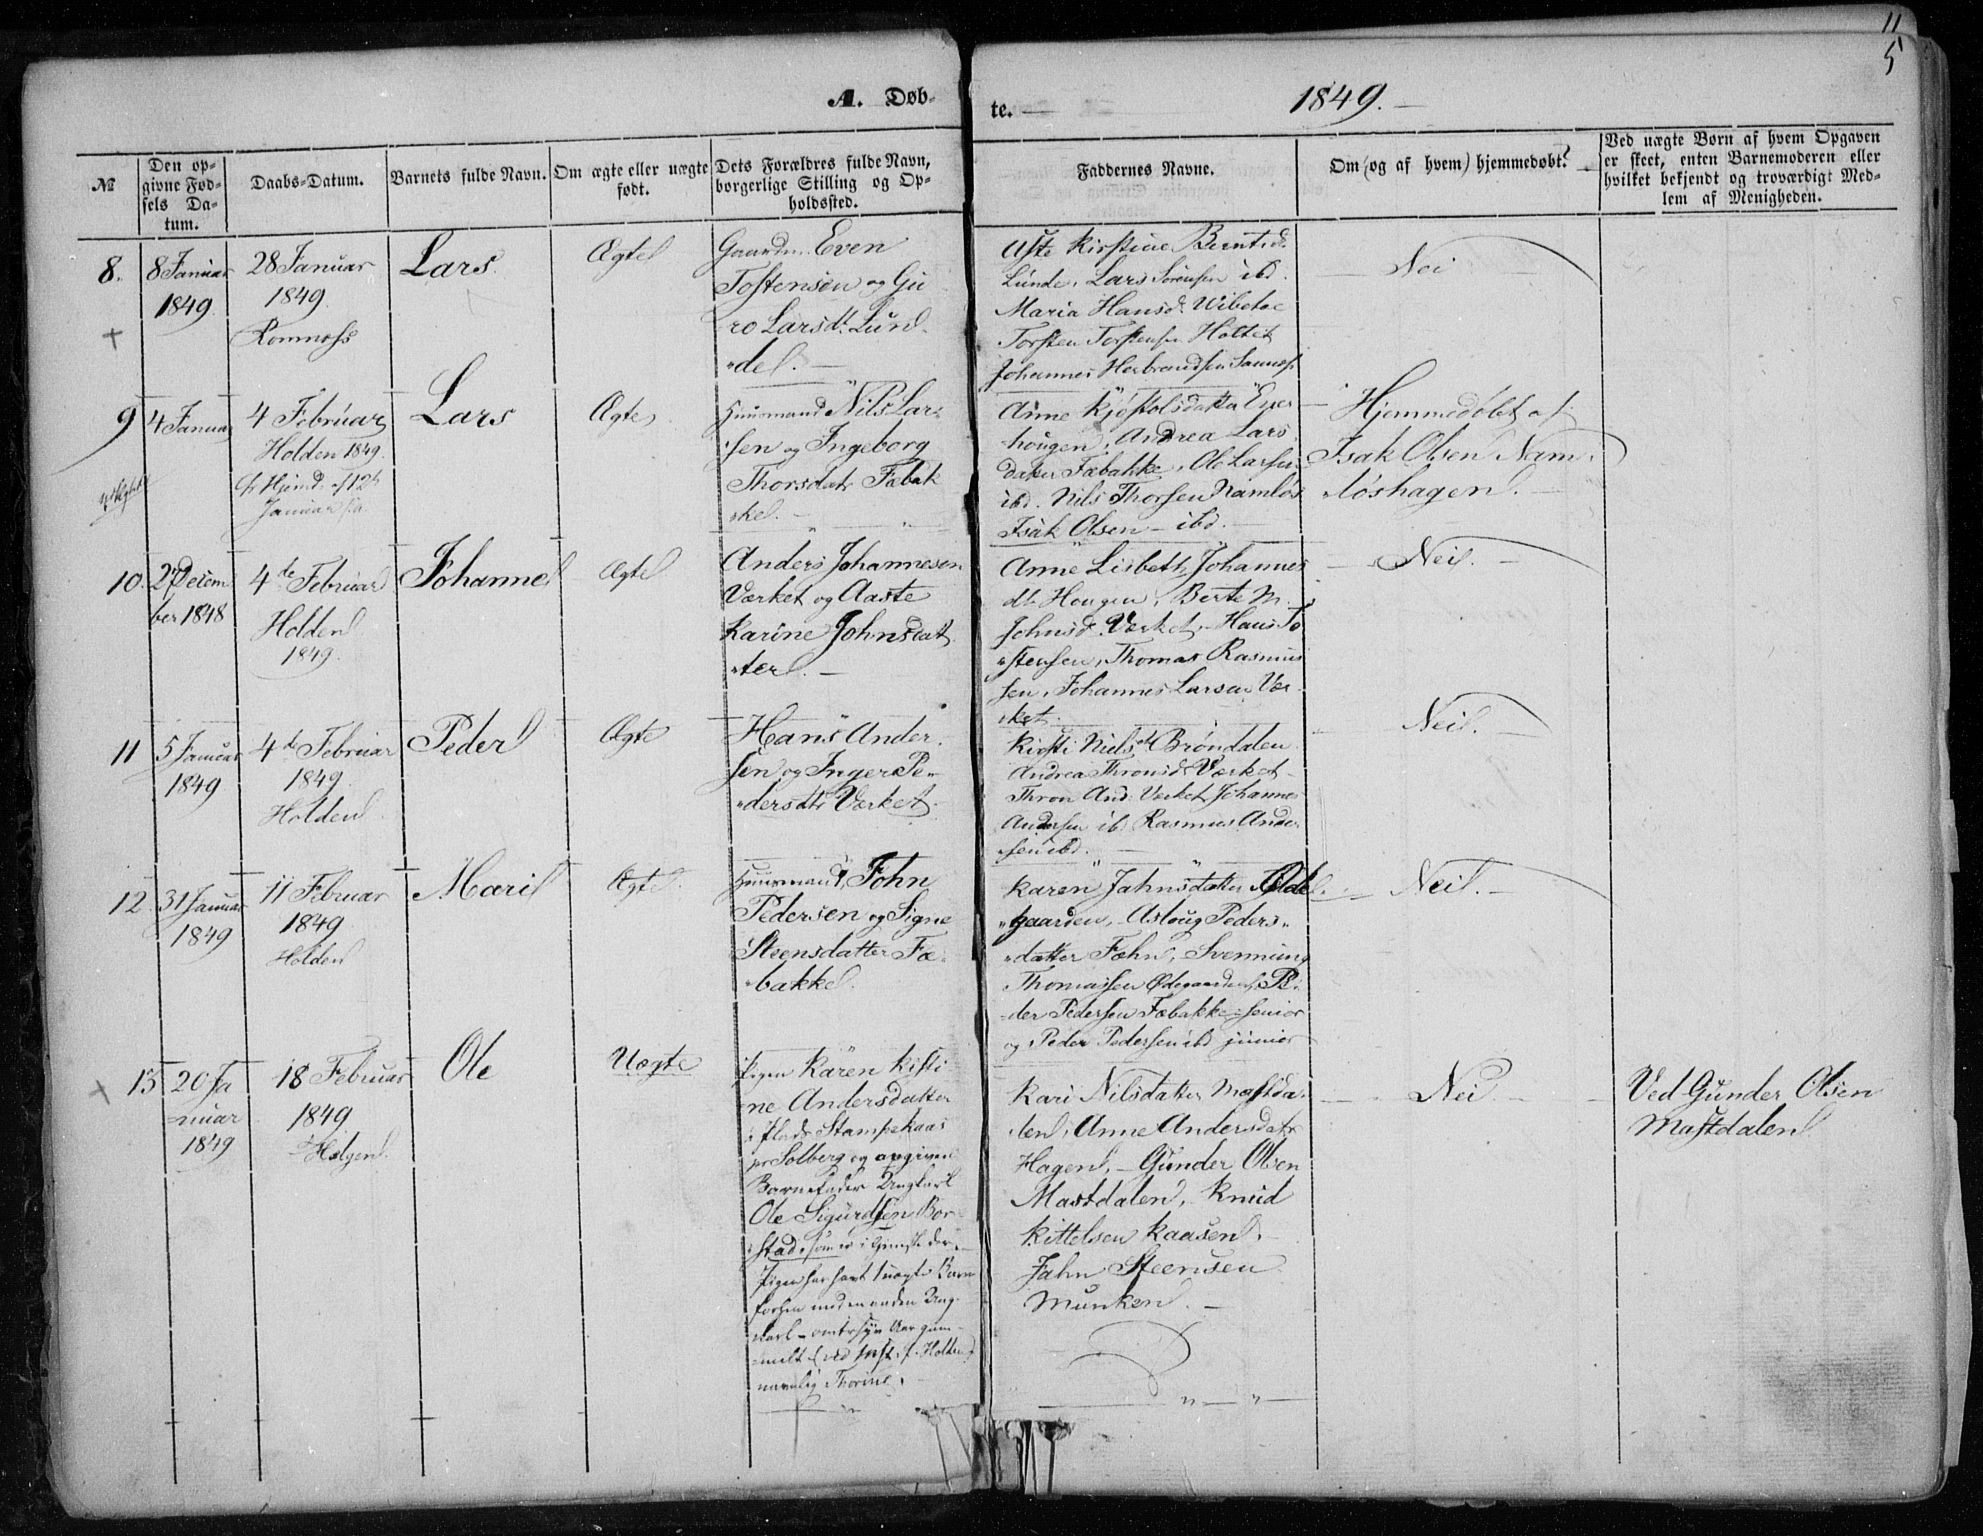 11
5
A. Døb-
te.
1849.
№
Den op-
givne Fød-
sels Da-
tum.
Daabs-Datum.
Barnets fulde Navn.
Om ægte eller uægte
født.
Dets Forældres fulde Navn,
borgerlige Stilling og Op-
holdssted.
Faddernes Navne.
Om (og af hvem) hjemmedøbt?
Ved uægte Børn af hvem Opgaven
er skeet, enten Barnemoderen eller
hvilket bekjendt og troværdigt Med-
lem af Menigheden.
8.
8 Januar
1849
28 Januar
1849.
Romnæss
Lars
Ægte
Gaardm. Even
Tostensen og Gu
ro Larsdt. Lun
del.
Kirstine Berntsd.
Lunde, Lars Sørensen ibd.
Maria Hansd. Vibetoe
Torsten Torstensen Holtet
Johannes Herbrandsen
Nei
9
4 Januar
4 Februar
Holden 1849.
Januar
Lars
Ægte
Huusmand Nils Lar
sen og Ingeborg
Thorsdatr Fæbak
kel.
Anne Kjøstolsdatter
hougen, Andrea Lars
datter Fæbakke, Ole Larsen
ibd. Nils Thorsen Namløs
Isak Olsen ibd.
Hjemmedøbt af
Isak Olsen Nam
løshagen.
10.
27 Decem
ber 1848
4de Februar
Holden
1849.
Johanne
Ægte
Anders Johannesen
Værket og Aaste
Karine Johnsdat
ter.
Anne Lisbett Johannes
dt. Hougen, Berte M.
Johnsd. Værket, Hans To
stensen, Thomas Rasmus
sen, Johannes Larsen Vær
ket.
Nei.
11
5 Januar
1849
4de Februar
1849.
Holden
Peder
Ægte
Hans Ander
sen og Inger Pe
dersdtr Værket.
Kirsti Nielsdt Brøndalen
Andrea Thronsd. Værket
Thron And. Værket, Johannes
Andersen ib. Rasmus Ander
sen ibd.
Nei.
12
31 Januar
1849
11 Februar
1849
Holden
Mari
Ægte.
Huusmand, John
Pedersen og Signe
Steensdatter Fæ
bakke.
Karen Jahnsdatter Øde
gaarden, Asloug Peders
datter Fæhn, Svennung
Thomassen Ødegaarden, Pe
der Pedersen Fæbakke senior
og Peder Pedersen ibd junior
Nei.
13
20 Ja
nuar
1849
18 Februar
1849.
Helgen.
Ole
Uægte
Pigen Karen Kisti
ne Andersdatter
Plads Stampekaas
Solberg og opgiven
Barnefader Ungkarl
Ole Sigurdsen Bor
stad, som er i Tjeneste der.
Pigen har havt 1 uægte Barn
forhen med en anden Ung
karl
melt Holden
navnlig Thorine.
Kari Nilsdatter Mastda
len, Anne Andersdatr
Hagen, Gunder Olsen
Mastdalen, Knud
Kittelsen Kaasen,
Jahn Steensen
Munken.
Nei.
Ved Gunder Olsen
Mastdalen